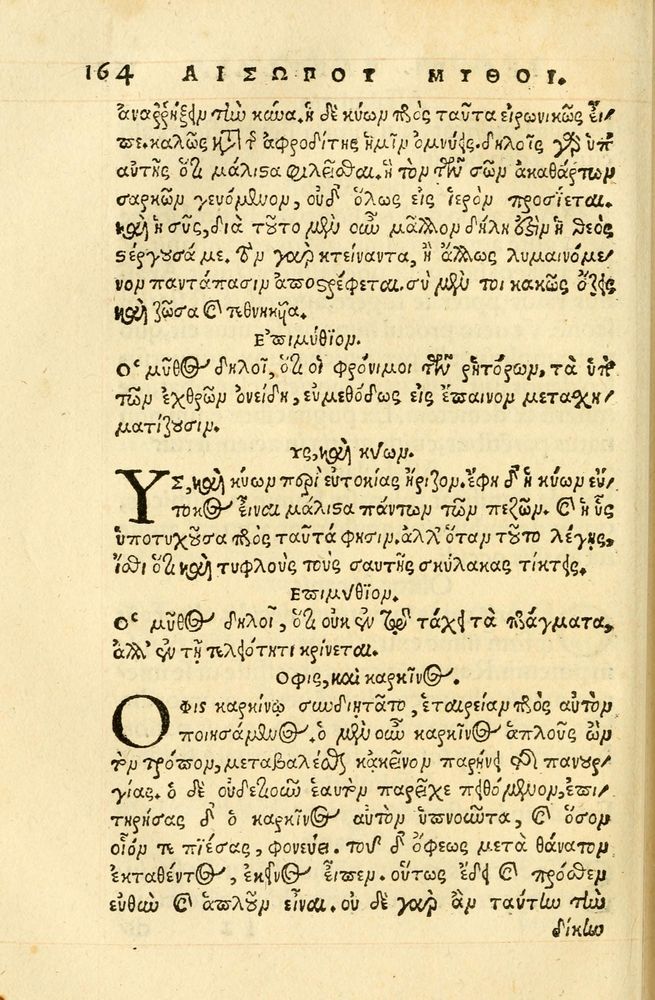 164 ΑΙΣΩΠΟΥ ΜΥΘΟΙ.
ἀναῤῥήξειν τὴν κύνα. ἡ δὲ κύων πρὸς ταῦτα εἰρωνικῶς εἶ-
πε. καλῶς κατὰ τῆς ἀφροδίτης ἡμῖν ὀμνύεις. δηλοῖς γὰρ ὑπ'
αὐτῆς ὅτι μάλιστα φιλεῖσθαι. ἣ τὸν τῶν σῶν ἀκαθάρτων
σαρκῶν γευόμενον, οὐδ' ὅλως εἰς ἱερὸν προσίεται.
καὶ ἡ σῦς, διὰ τοῦτο μὲν οὖν μᾶλλον δήλη ἐστὶν ἡ θεὸς
στέργουσά με. τὸν γὰρ κτείναντα, ἢ ἄλλως λυμαινόμε-
νον παντάπασιν ἀποστρέφεται. σὺ μέν τοι κακῶς ὄζεις
καὶ ζῶσα καὶ τεθνηκυῖα.
Ἐπιμύθιον.
Ὁ μῦθος δηλοῖ, ὅτι οἱ φρόνιμοι τῶν ῥητόρων, τὰ ὑπὸ
τῶν ἐχθρῶν ὀνείδη, εὐμεθόδως εἰς ἔπαινον μετασχη-
ματίζουσιν.
Ὗς, καὶ κύων.
ΥΣ, καὶ κύων περὶ εὐτοκίας ἤριζον. ἔφη δ' ἡ κύων εὔ-
τοκος εἶναι μάλιστα πάντων τῶν πεζῶν. καὶ ἡ ὗς
ὑποτυχοῦσα πρὸς ταῦτά φησιν. ἀλλ' ὅταν τοῦτο λέγῃς,
ἴσθι ὅτι καὶ τυφλοὺς τοὺς σαυτῆς σκύλακας τίκτεις.
Ἐπιμύθιον.
Ὁ μῦθος δηλοῖ, ὅτι οὐκ ἐν τῷ τάχει τὰ πράγματα,
ἀλλ' ἐν τῇ τελειότητι κρίνεται.
Ὄφις, καὶ καρκῖνος.
ΟΦΙΣ καρκίνῳ συνδιῃτᾶτο, ἑταιρείαν πρὸς αὐτὸν
ποιησάμενος. ὁ μὲν οὖν καρκῖνος ἁπλοῦς ὢν
τὸν τρόπον, μεταβαλέσθαι κἀκεῖνον παρῄνει τῆς πανουρ-
γίας. ὁ δὲ οὐδετιοῦν ἑαυτὸν παρεῖχε πειθόμενον, ἐπι-
τηρήσας δ' ὁ καρκῖνος αὐτὸν ὑπνοῦντα, καὶ ὅσον
οἷόν τε πιέσας, φονεύει. τοῦ δ' ὄφεως μετὰ θάνατον
ἐκταθέντος, ἐκεῖνος εἶπεν. οὕτως ἔδει καὶ πρόσθεν
εὐθὺν καὶ ἁπλοῦν εἶναι. οὐ δὲ γὰρ ἂν ταύτην τὴν
δίκην